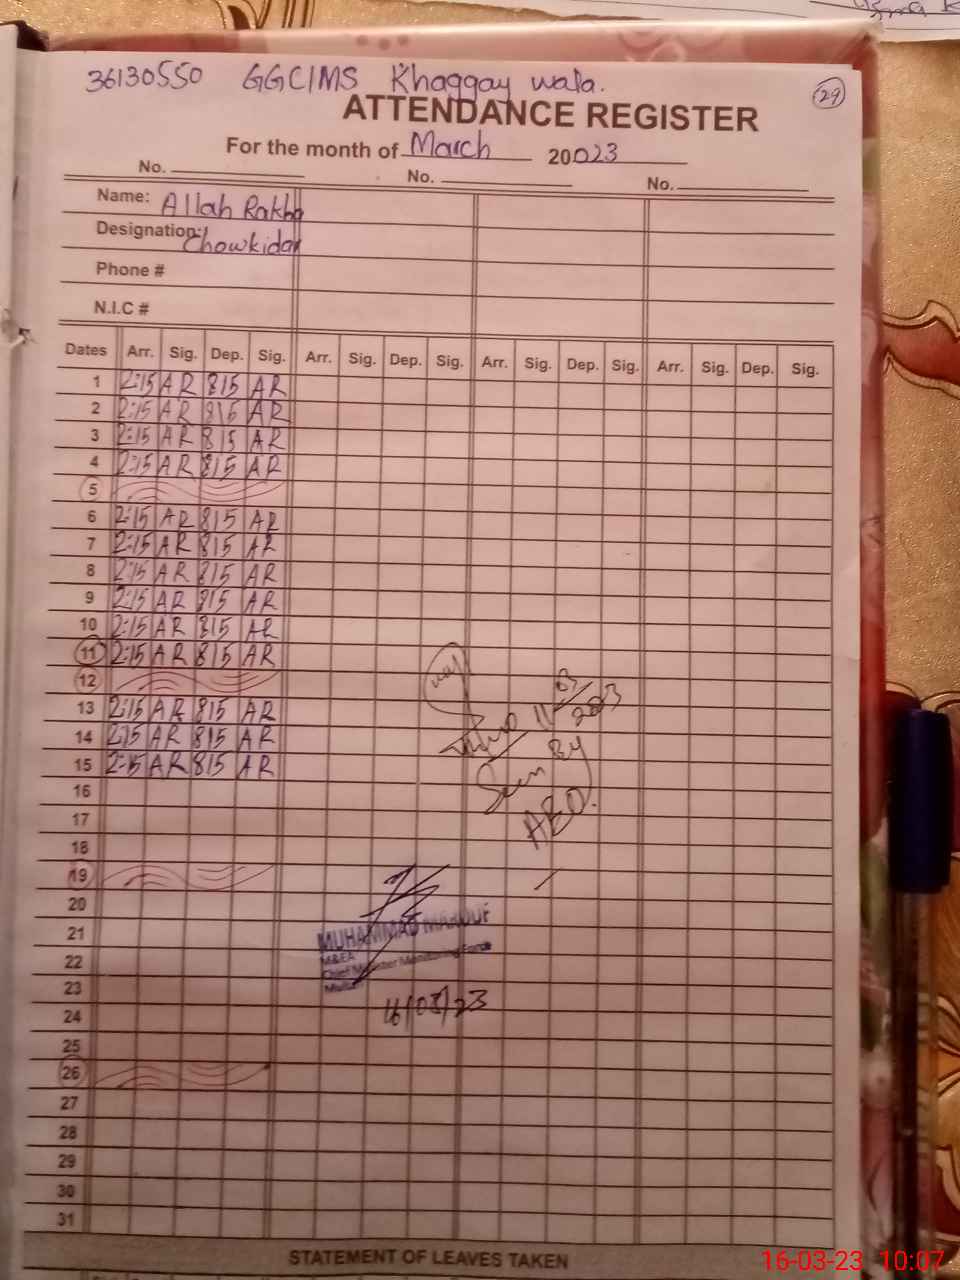 36130550 GGCIMS Khaggay wala.
29
ATTENDANCE REGISTER
For the month of March 20023
No. No. No.
Name: Allah Rakha
Designation: Chowkidar
Phone #
N.I.C #
Dates Arr. Sig. Dep. Sig. Arr. Sig. Dep. Sig. Arr. Sig. Dep. Sig. Arr. Sig. Dep. Sig.
1 2:15 AR 815 AR
2 2:15 AR 815 AR
3 2:15 AR 815 AR
4 2:15 AR 815 AR
5
6 2:15 AR 815 AR
7 2:15 AR 815 AR
8 2:15 AR 815 AR
9 2:15 AR 815 AR
10 2:15 AR 815 AR
11 2:15 AR 815 AR
12
13 2:15 AR 815 AR
14 2:15 AR 815 AR
15 2:15 AR 815 AR
11/03/2023
Seen By
AEO.
16
17
18
19
20
21
22
23
24
25
26
27
28
29
30
31
MUHAMMAD MAROUF
M&EA
Chief Minister Monitoring Force
16/03/23
STATEMENT OF LEAVES TAKEN
16-03-23 10:07